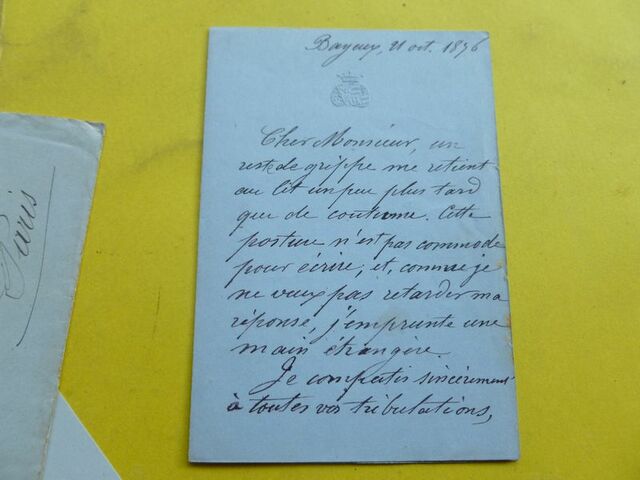 Bayeux, 21 oct. 1876
Cher Monsieur, un
reste de grippe me retient
au lit un peu plus tard
que de coutume. Cette
posture n'est pas commode
pour écrire; et, comme je
ne veux pas retarder ma
réponse, j'emprunte une
main étrangère.
Je compatis sincèrement
à toutes vos tribulations,
Paris